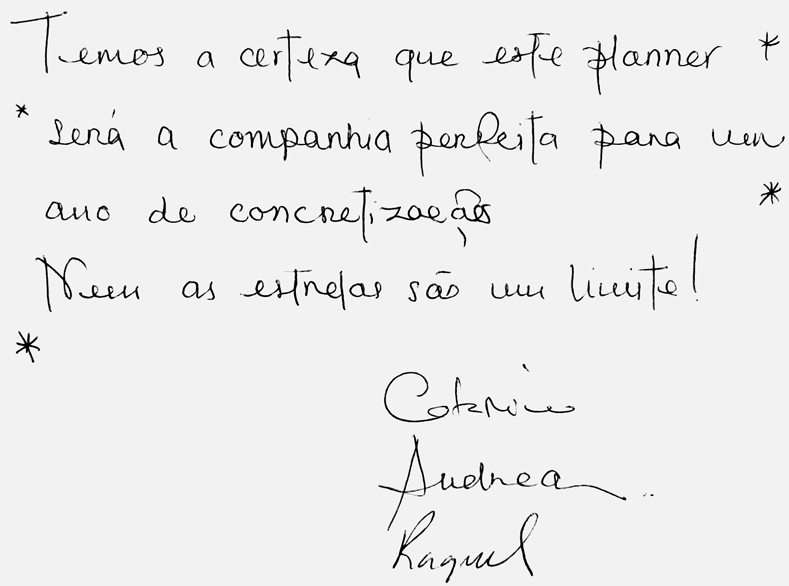 Temos a certeza que este planner *
* será a companhia perfeita para um
ano de concretização *
Nem as estrelas são um limite!
*
Catarina
Andrea
Raquel